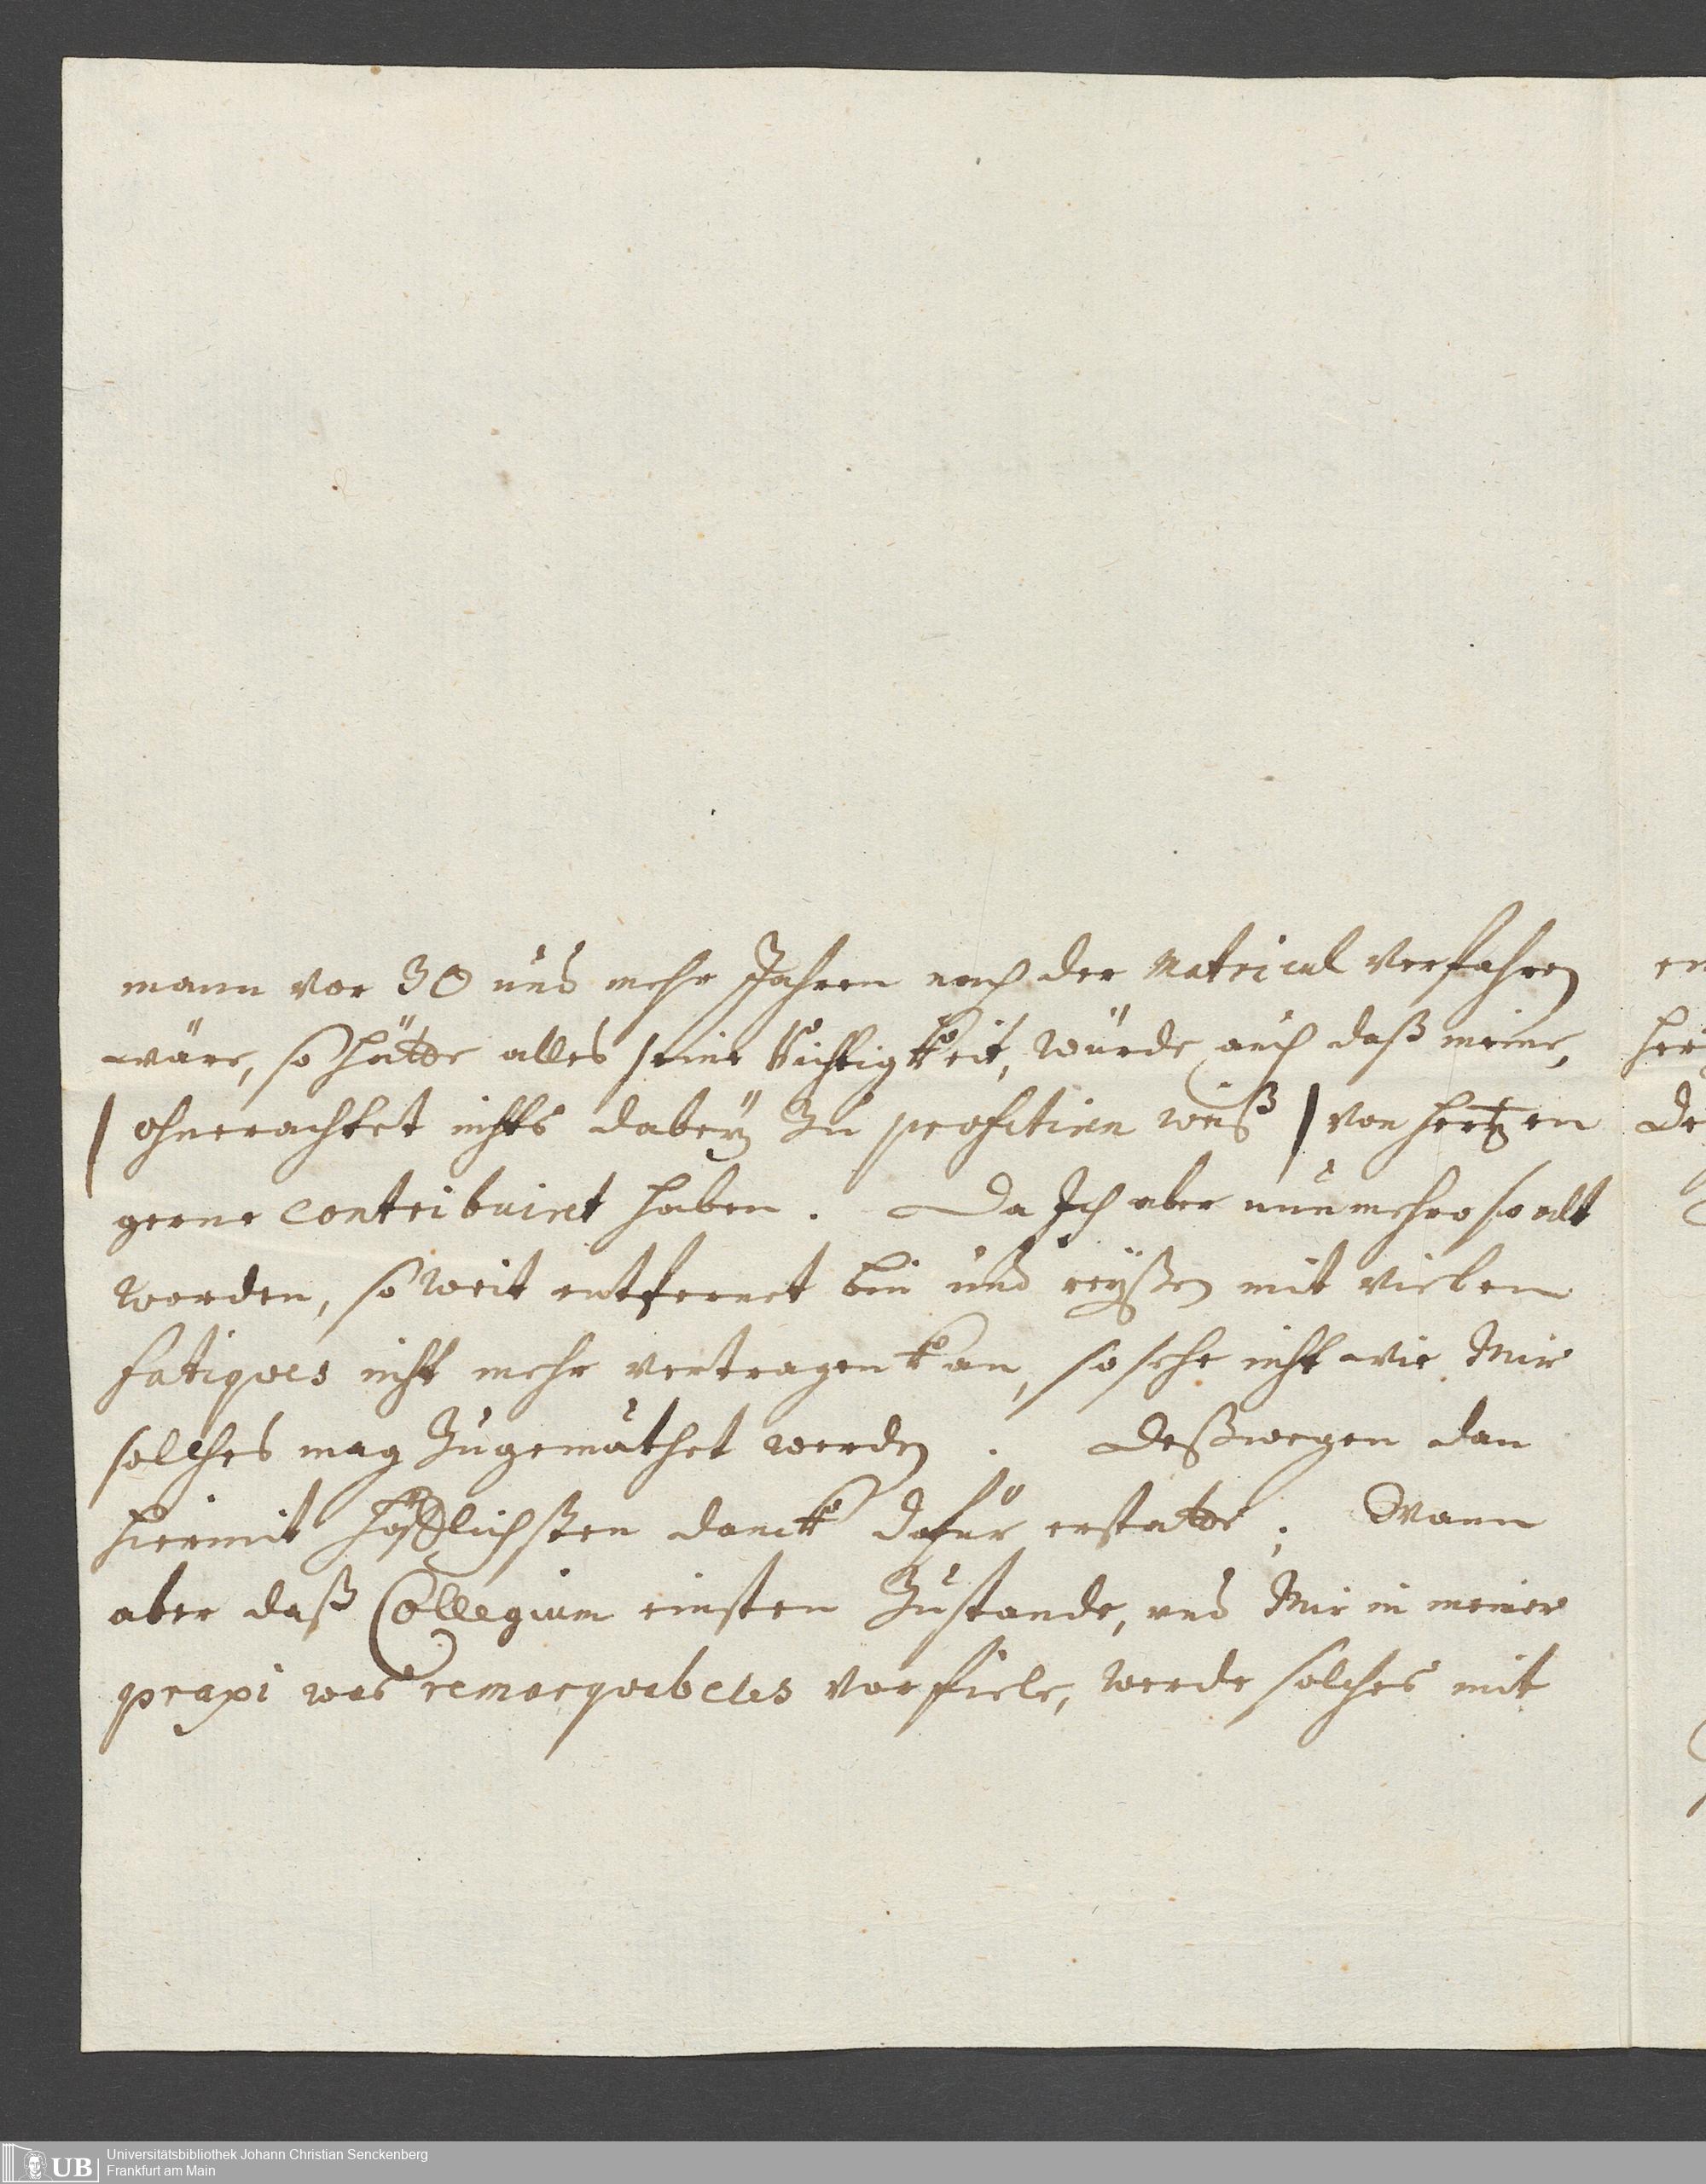 mann vor 30 und mehr Jahren nach der Matricul verfahren
wäre, so hätte alles seine Richtigkeit, würde auch daß meine,
| ohnerachtet nichts dabey zu profitiren weiß | von hertzen
gerne contribuiret haben. Da Ich aber nunmehro so alt
worden, so weit entfernet bin und reyßen mit vielen
fatiques nicht mehr vertragen kan, so sehe nicht wie Mir
solches mag zugemuthet werden. Deßwegen dan
hiermit höfflichsten danck dafür erstatte; Wann
aber daß Collegium einsten zustande, und Mir in meiner
praxi was remarquables vorfiele, werde solches mit
en
De
Universitätsbibliothek Johann Christian Senckenberg
Frankfurt am Main
UB